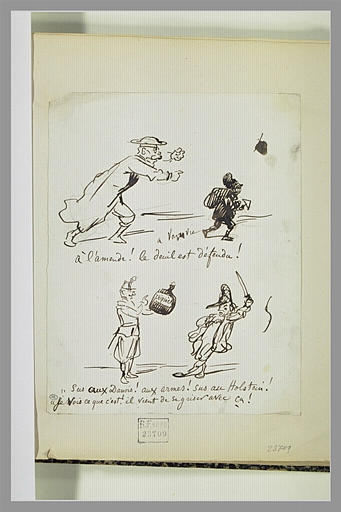 à Varsovie
à l'amende! le deuil est défendu!
"Sus aux Danois! aux armes! Sus au Holstein!
Je vois ce que c'est! il vient de se griser avec ça!
R.F.
23709
23709